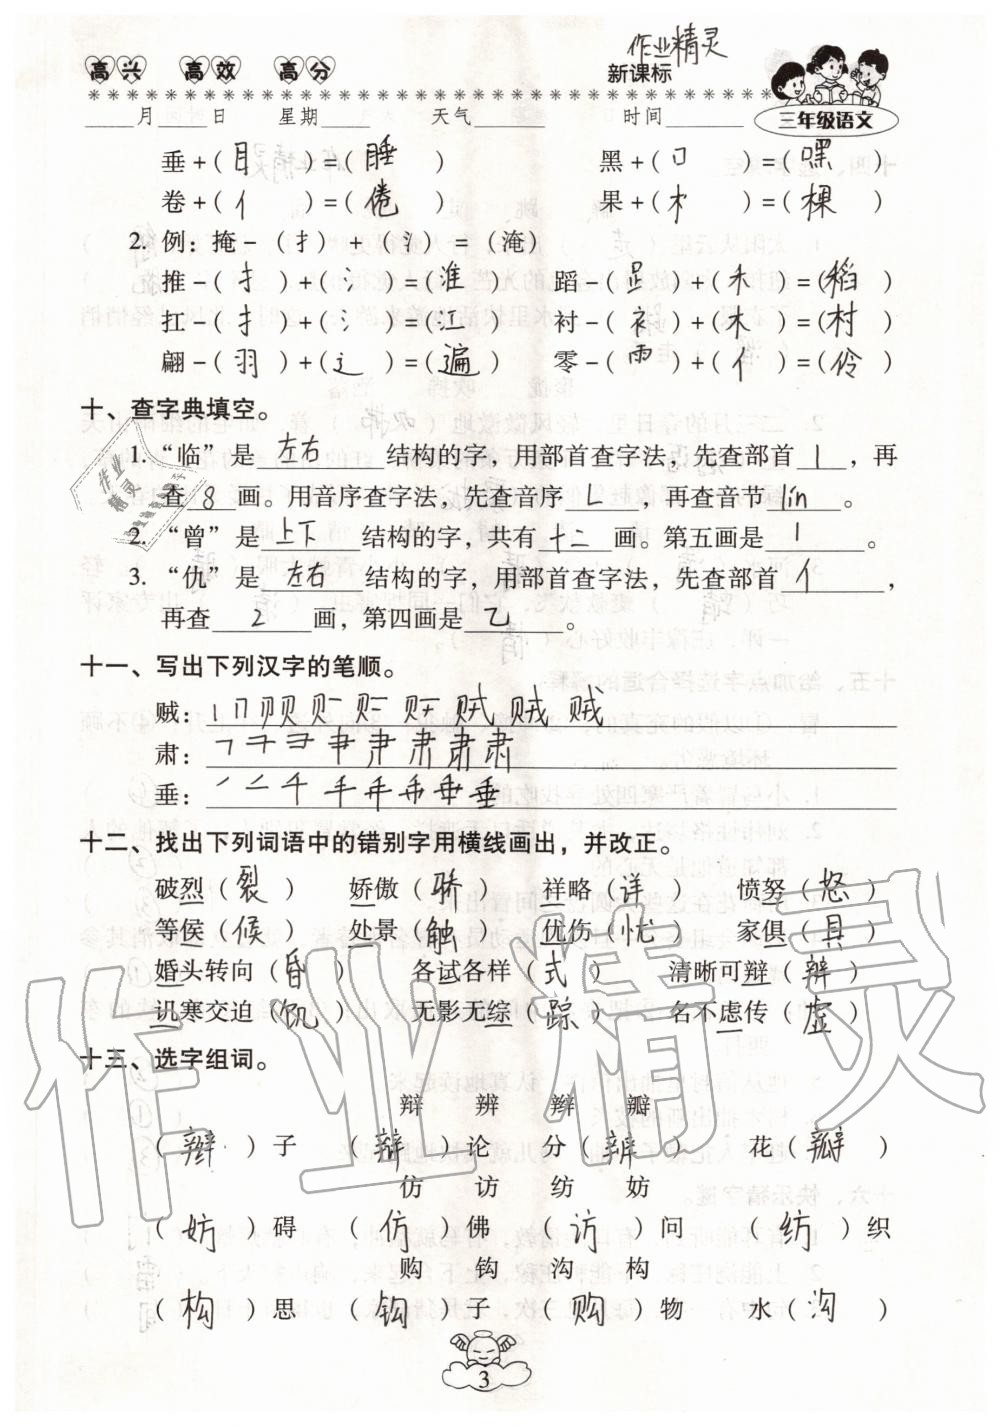 作业精灵
高兴 高效 高分 新课标
三年级语文
____月____日 星期____ 天气____ 时间____
垂+(目)=(睡) 黑+(口)=(嘿)
卷+(亻)=(倦) 果+(木)=(棵)
2. 例：掩-(扌)+(氵)=(淹)
推-(扌)+(氵)=(淮) 蹈-(𧾷)+(禾)=(稻)
扛-(扌)+(氵)=(江) 衬-(衤)+(木)=(村)
翩-(羽)+(辶)=(遍) 零-(雨)+(亻)=(伶)
十、查字典填空。
1. “临”是 左右 结构的字，用部首查字法，先查部首 丨 ，再
查 8 画。用音序查字法，先查音序 L ，再查音节 lín 。
2. “曾”是 上下 结构的字，共有 十二 画。第五画是 丨 。
3. “仇”是 左右 结构的字，用部首查字法，先查部首 亻 ，
再查 2 画，第四画是 乙 。
十一、写出下列汉字的笔顺。
贼：
肃：
垂：
十二、找出下列词语中的错别字用横线画出，并改正。
破烈（裂） 娇傲（骄） 祥略（详） 愤努（怒）
等侯（候） 处景（触） 优伤（忧） 家俱（具）
婚头转向（昏） 各试各样（式） 清晰可辩（辨）
讥寒交迫（饥） 无影无综（踪） 名不虑传（虚）
十三、选字组词。
辩 辨 辫 瓣
（辫）子 （辩）论 分（辨） 花（瓣）
仿 访 纺 妨
（妨）碍 （仿）佛 （访）问 （纺）织
购 钩 沟 构
（构）思 （钩）子 （购）物 水（沟）
3
作业精灵